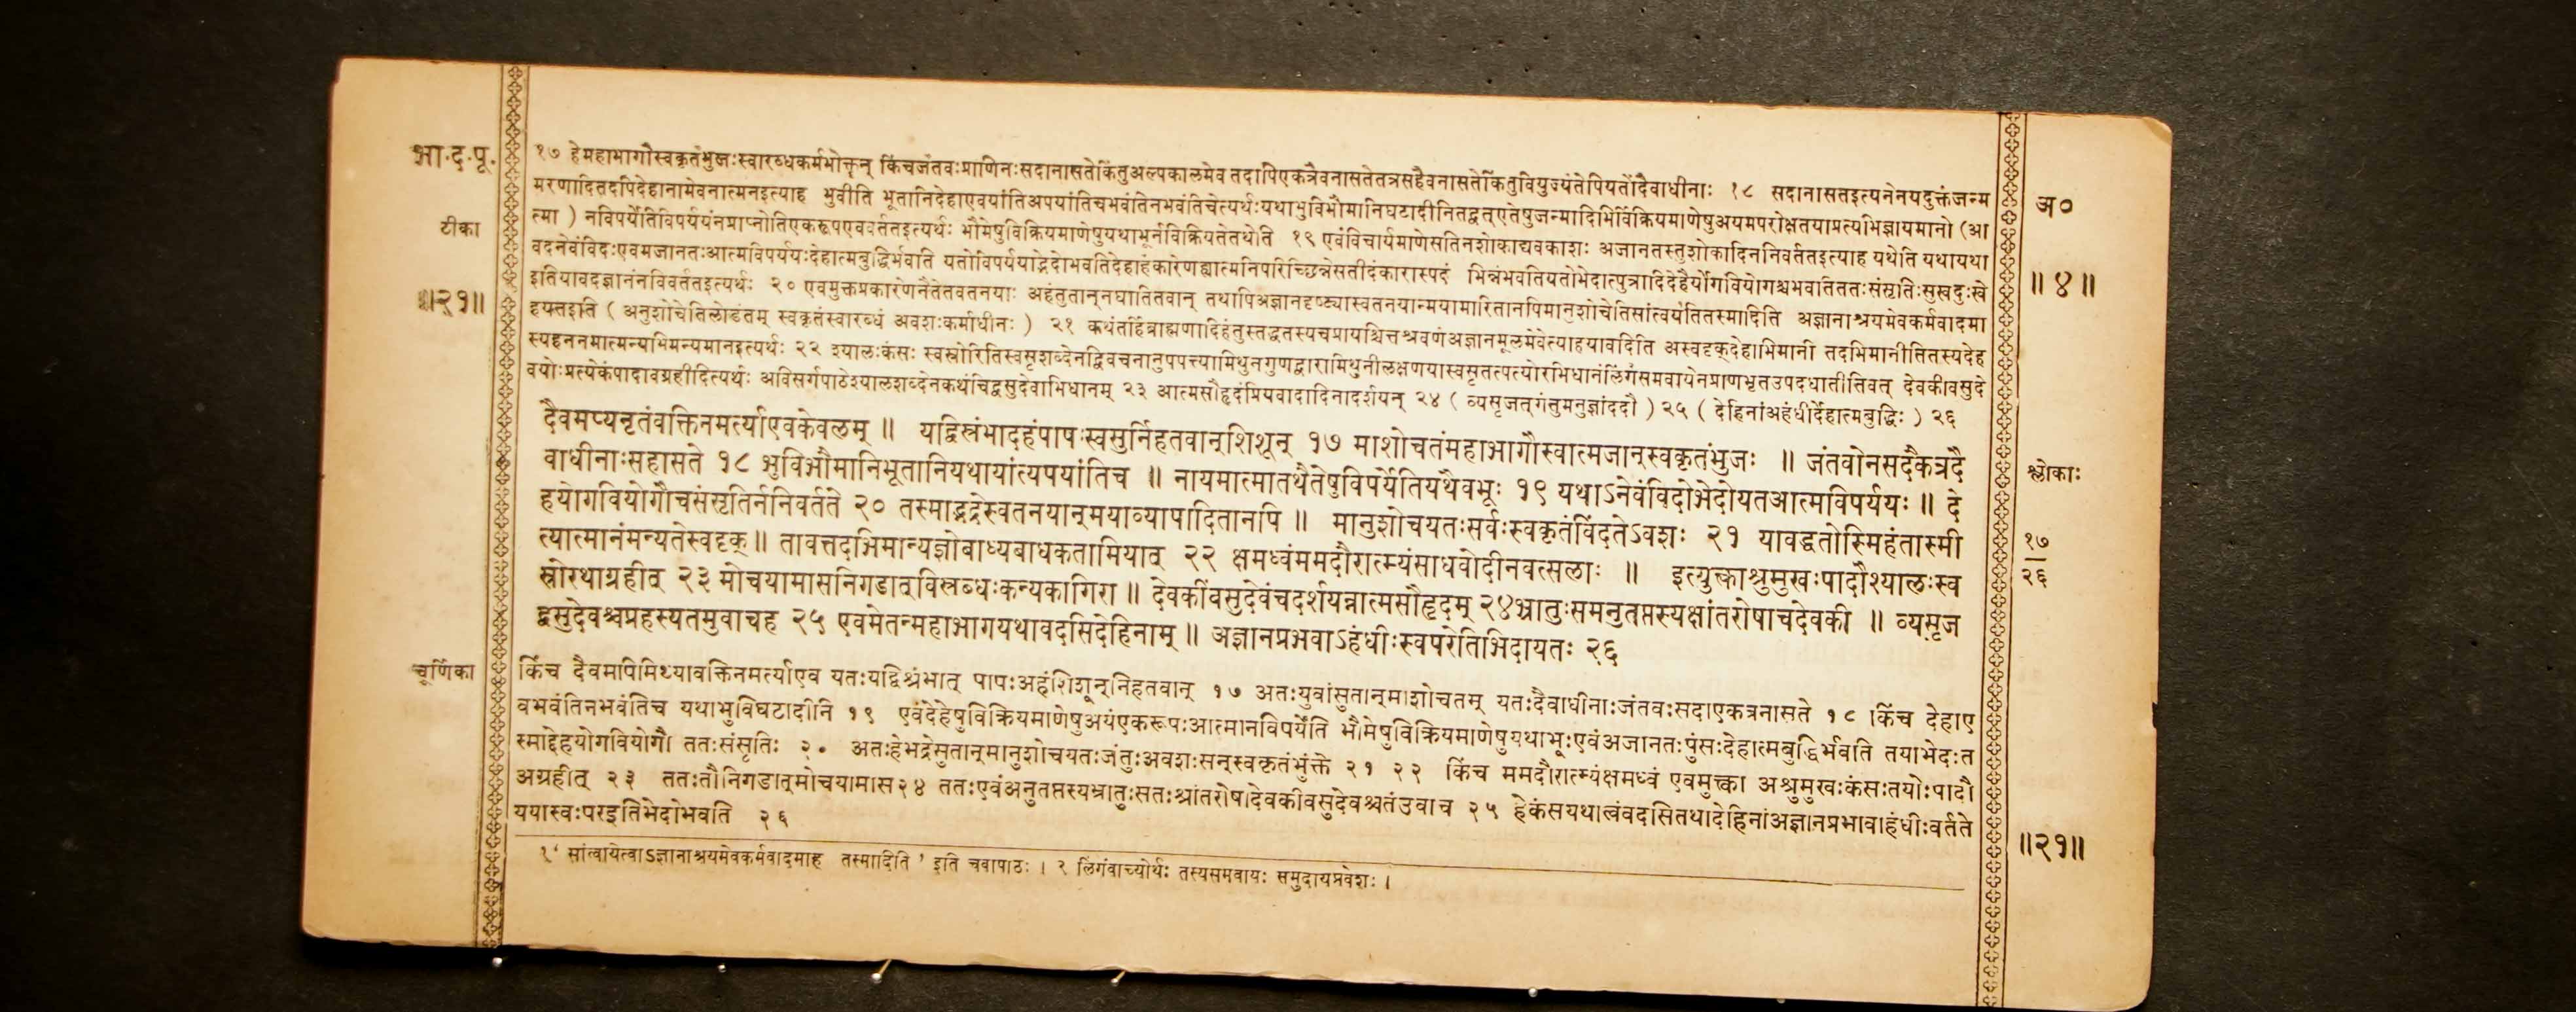 भा·द·पू.
टीका
॥२१॥
चूर्णिका
१७ हेमहाभागौस्वकृतंभुजःस्वारब्धकर्मभोक्तॄन् किंचजंतवःप्राणिनःसदानासतेकिंतुअल्पकालमेव तदापिएकत्रैवनासतेतत्रसहैवनासतेकिंतुवियुज्यंतेपियतोदैवाधीनाः १८ सदानासतइत्यनेनयदुक्तंजन्म
मरणादितदपिदेहानामेवनात्मनइत्याह भुवीति भूतानिदेहाएवयांतिअपयांतिचभवंतिनभवंतिचेत्यर्थःयथाभुविभौमानिघटादीनितद्वत्एतेषुजन्मादिभिर्विक्रियमाणेषुअयमपरोक्षतयाप्रत्यभिज्ञायमानो (आ
त्मा ) नविपर्येतिविपर्ययंनप्राप्नोतिएकरूपएववर्ततइत्यर्थः भौमेषुविक्रियमाणेषुयथाभूर्नविक्रियतेतथेति १९ एवंविचार्यमाणेसतिनशोकाद्यवकाशः अजानतस्तुशोकादिननिवर्ततइत्याह यथेति यथायथा
वदनेवंविदःएवमजानतःआत्मविपर्ययःदेहात्मबुद्धिर्भवति यतोविपर्ययाद्भेदोभवतिदेहाहंकारेणह्यात्मनिपरिच्छिन्नेसतीदंकारास्पदं भिन्नंभवतियतोभेदात्पुत्रादिदेहैर्योगवियोगश्चभवतिततःसंसृतिःसुखदुःखे
इतियावदज्ञानंनविवर्ततइत्यर्थः २० एवमुक्तप्रकारेणनैतेतवतनयाः अहंतुतान्नघातितवान् तथापिअज्ञानदृष्ट्यास्वतनयान्मयामारितानपिमानुशोचेतिसांत्वयंतितस्मादिति अज्ञानाश्रयमेवकर्मवादमा
हयतइति ( अनुशोचेतिलोडंतम् स्वकृतंस्वारब्धं अवशःकर्माधीनः ) २१ कथंतर्हिब्राह्मणादिहंतुस्तद्धतस्यचप्रायश्चित्तश्रवणंअज्ञानमूलमेवेत्याहयावदिति अस्वदृक्देहाभिमानी तदभिमानीतितस्यदेह
स्यहननमात्मन्यभिमन्यमानइत्यर्थः २२ श्यालःकंसः स्वस्रोरितिस्वसृशब्देनद्विवचनानुपपत्त्यामिथुनगुणद्वारामिथुनीलक्षणयास्वसृतत्पत्योरभिधानंलिंगसमवायेनप्राणभृतउपदधातीतिवत् देवकीवसुदे
वयोःप्रत्येकंपादावग्रहीदित्यर्थः अविसर्गपाठेश्यालशब्देनकथंचिद्वसुदेवाभिधानम् २३ आत्मसौहृदंप्रियवादादिनादर्शयन् २४ ( व्यसृजत्गंतुमनुज्ञांददौ ) २५ ( देहिनांअहंधीर्देहात्मबुद्धिः ) २६
दैवमप्यनृतंवक्तिनमर्त्याएवकेवलम् ॥ यद्विस्रंभादहंपापःस्वसुर्निहतवान्शिशून् १७ माशोचतंमहाभागौस्वात्मजान्स्वकृतंभुजः ॥ जंतवोनसदैकत्रदै
वाधीनाःसहासते १८ भुविभौमानिभूतानियथायांत्यपयांतिच ॥ नायमात्मातथैतेषुविपर्येतियथैवभूः १९ यथाऽनेवंविदोभेदोयतआत्मविपर्ययः ॥ दे
हयोगवियोगौचसंसृतिर्ननिवर्तते २० तस्माद्भद्रेस्वतनयान्मयाव्यापादितानपि ॥ मानुशोचयतःसर्वःस्वकृतंविंदतेऽवशः २१ यावद्धतोस्मिहंतास्मी
त्यात्मानंमन्यतेस्वदृक् ॥ तावत्तदभिमान्यज्ञोबाध्यबाधकतामियात् २२ क्षमध्वंममदौरात्म्यंसाधवोदीनवत्सलाः ॥ इत्युक्त्वाश्रुमुखःपादौश्यालःस्व
स्रोरथाग्रहीत् २३ मोचयामासनिगडात्विस्रब्धःकन्यकागिरा ॥ देवकींवसुदेवंचदर्शयन्नात्मसौहृदम् २४ भ्रातुःसमनुतप्तस्यक्षांतरोषाचदेवकी ॥ व्यसृज
द्वसुदेवश्चप्रहस्यतमुवाचह २५ एवमेतन्महाभागयथावदसिदेहिनाम् ॥ अज्ञानप्रभवाऽहंधीःस्वपरेतिभिदायतः २६
किंच दैवमपिमिथ्यावक्तिनमर्त्याएव यतःयद्विश्रंभात् पापःअहंशिशून्निहतवान् १७ अतःयुवांसुतान्माशोचतम् यतःदैवाधीनाःजंतवःसदाएकत्रनासते १८ किंच देहाए
वभवंतिनभवंतिच यथाभुविघटादीनि १९ एवंदेहेषुविक्रियमाणेषुअयंएकरूपःआत्मानविपर्येति भौमेषुविक्रियमाणेषुयथाभूःएवंअजानतःपुंसःदेहात्मबुद्धिर्भवति तयाभेदःत
स्माद्देहयोगवियोगौ ततःसंसृतिः २० अतःहेभद्रेसुतान्मानुशोचयतःजंतुःअवशःसन्स्वकृतंभुंक्ते २१ २२ किंच ममदौरात्म्यंक्षमध्वं एवमुक्त्वा अश्रुमुखःकंसःतयोःपादौ
अग्रहीत् २३ ततःतौनिगडात्मोचयामास२४ ततःएवंअनुतप्तस्यभ्रातुःसतःश्रांतरोषादेवकीवसुदेवश्चतंउवाच २५ हेकंसयथात्वंवदसितथादेहिनांअज्ञानप्रभावाहंधीःवर्तते
ययास्वःपरइतिभेदोभवति २६
१ ‘ सांत्वायेत्वाऽज्ञानाश्रयमेवकर्मवादमाह तस्मादिति ’ इति चवापाठः । २ लिंगंवाच्योर्थः तस्यसमवायः समुदायप्रवेशः ।
अ०
॥ ४ ॥
श्लोकाः
१७
२६
॥२१॥